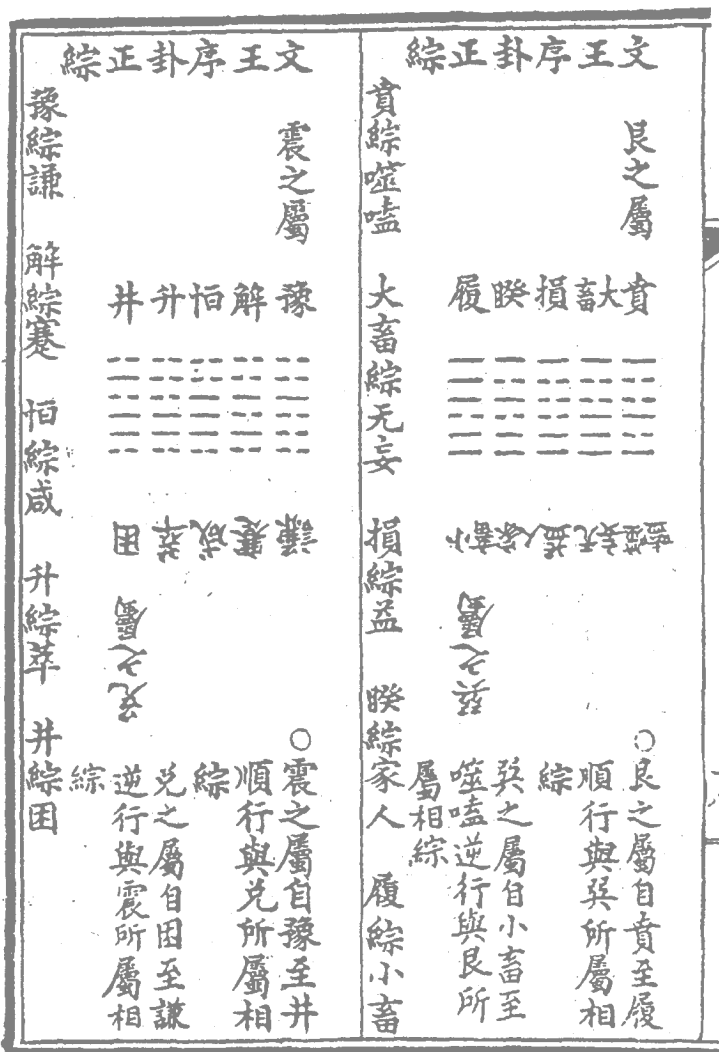 文王序卦正綜
艮之屬
賁 大畜 損 睽 履
噬嗑 无妄 益 家人 小畜
巽之屬
○艮之屬自賁至履
順行與巽所屬相
綜
巽之屬自小畜至
噬嗑逆行與艮所
屬相綜
賁綜噬嗑 大畜綜无妄 損綜益 睽綜家人 履綜小畜
文王序卦正綜
震之屬
豫 解 恒 升 井
謙 蹇 咸 萃 困
兌之屬
○震之屬自豫至井
順行與兌所屬相
綜
兌之屬自困至謙
逆行與震所屬相
綜
豫綜謙 解綜蹇 恒綜咸 升綜萃 井綜困